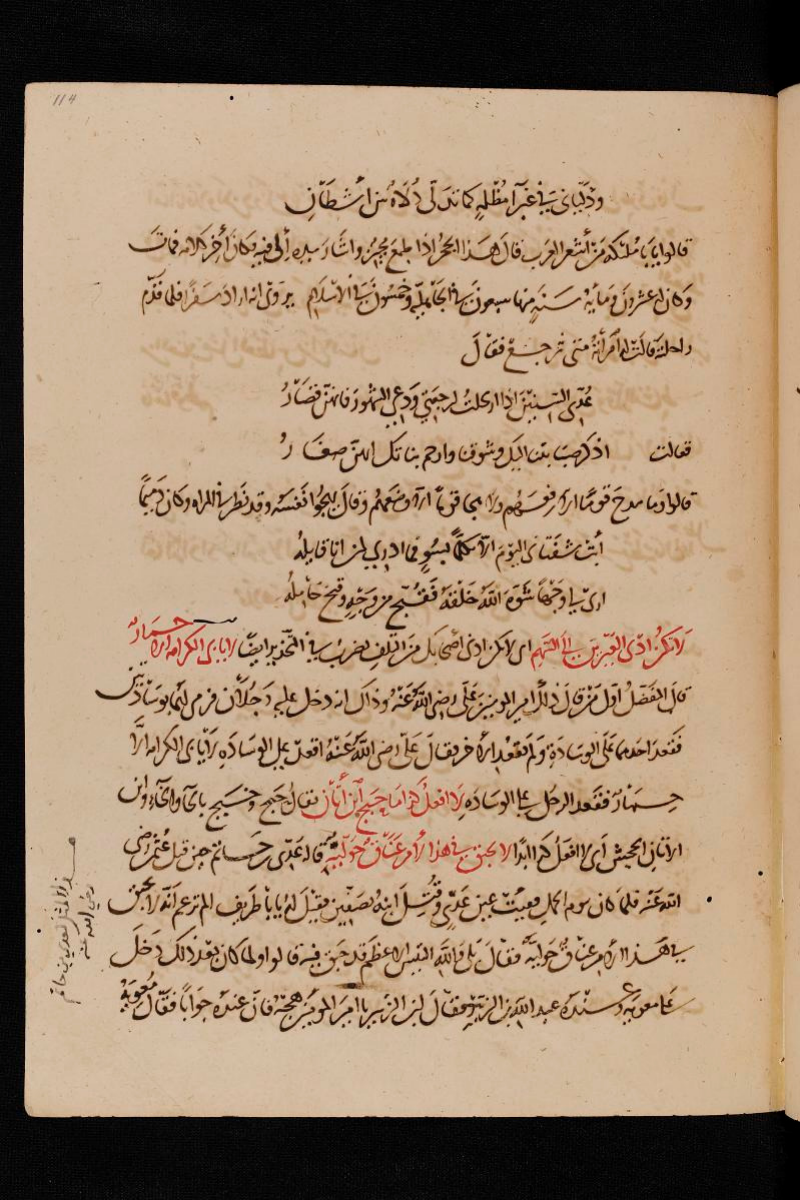 114
ودلياني في غبرا مظلمه كما تدلى دلاة بين اشطان
قالوا يابا مليكه من أشعر العرب قال هذا الحجر اذا طمع بخير واشار بيده إلى فيه وكان أخر كلامه فمات
وكان له عشرون ومايه سنه منها سبعون في الجاهليه وخمسون في الاسلام يروى انه اراد سفرا فلما قدم
راحلته قالت له امرأته متى ترجع فقال
عدي السنين اذا ارتحلت لرجعتي ودعي الشهور فانهن قصار
فقالت اذكر صبابتنا اليك وشوقنا وارحم بناتك انهن صغار
قالوا وما مدح قوما الا رفعهم ولا هجا قوما الا وضعهم وقال يهجوا نفسه وقد نظر في المراه وكان دميما
أبت شفتاي اليوم الا تكلما بسوء فما ادري لمن انا قايله
ارى لي وجها شوه الله خلقه فقبح من وجه وقبح حامله
لا تكن ادنى العيرين الى السهم اي لا تكن ادنى اصحابك من التلف يضرب في التحذير ايضا لا يابى الكرامه الا حمار
قال المفضل اول من قال ذلك امير المومنين علي رضي الله عنه وذاك انه دخل عليه رجلان فرمى لهما بوسادتين
فقعد احدهما على الوساده ولم يقعد الاخر فقال علي رضي الله عنه اقعد على الوساده لا يابى الكرامه الا
حمار فقعد الرجل على الوساده لا افعل كذا ما حبج ابن أتان يقال حبج وخبج بالحا والخاء وابن
الاتان الجحش أى لا افعل كذا ابدا لا تحبق في هذا الامر عناق حوليه قاله عدي بن حاتم حين قتل عثمن رضي
الله عنه فلما كان يوم الجمل فقيت عين عدي وقتل ابنه بصفين فقيل له يا با طريف الم تزعم انه لا تحبق
في هذا الامر عناق حوليه فقال بلى والله التيس الاعظم قد حبق فيه قالوا ولما كان بعد ذلك دخل
على معويه وعنده عبد الله بن الزبير فقال ابن الزبير يا امير المومنين هجه فان عنده جوابا فقال معويه
هذا المثل لعدي بن حاتم
رضي الله عنه